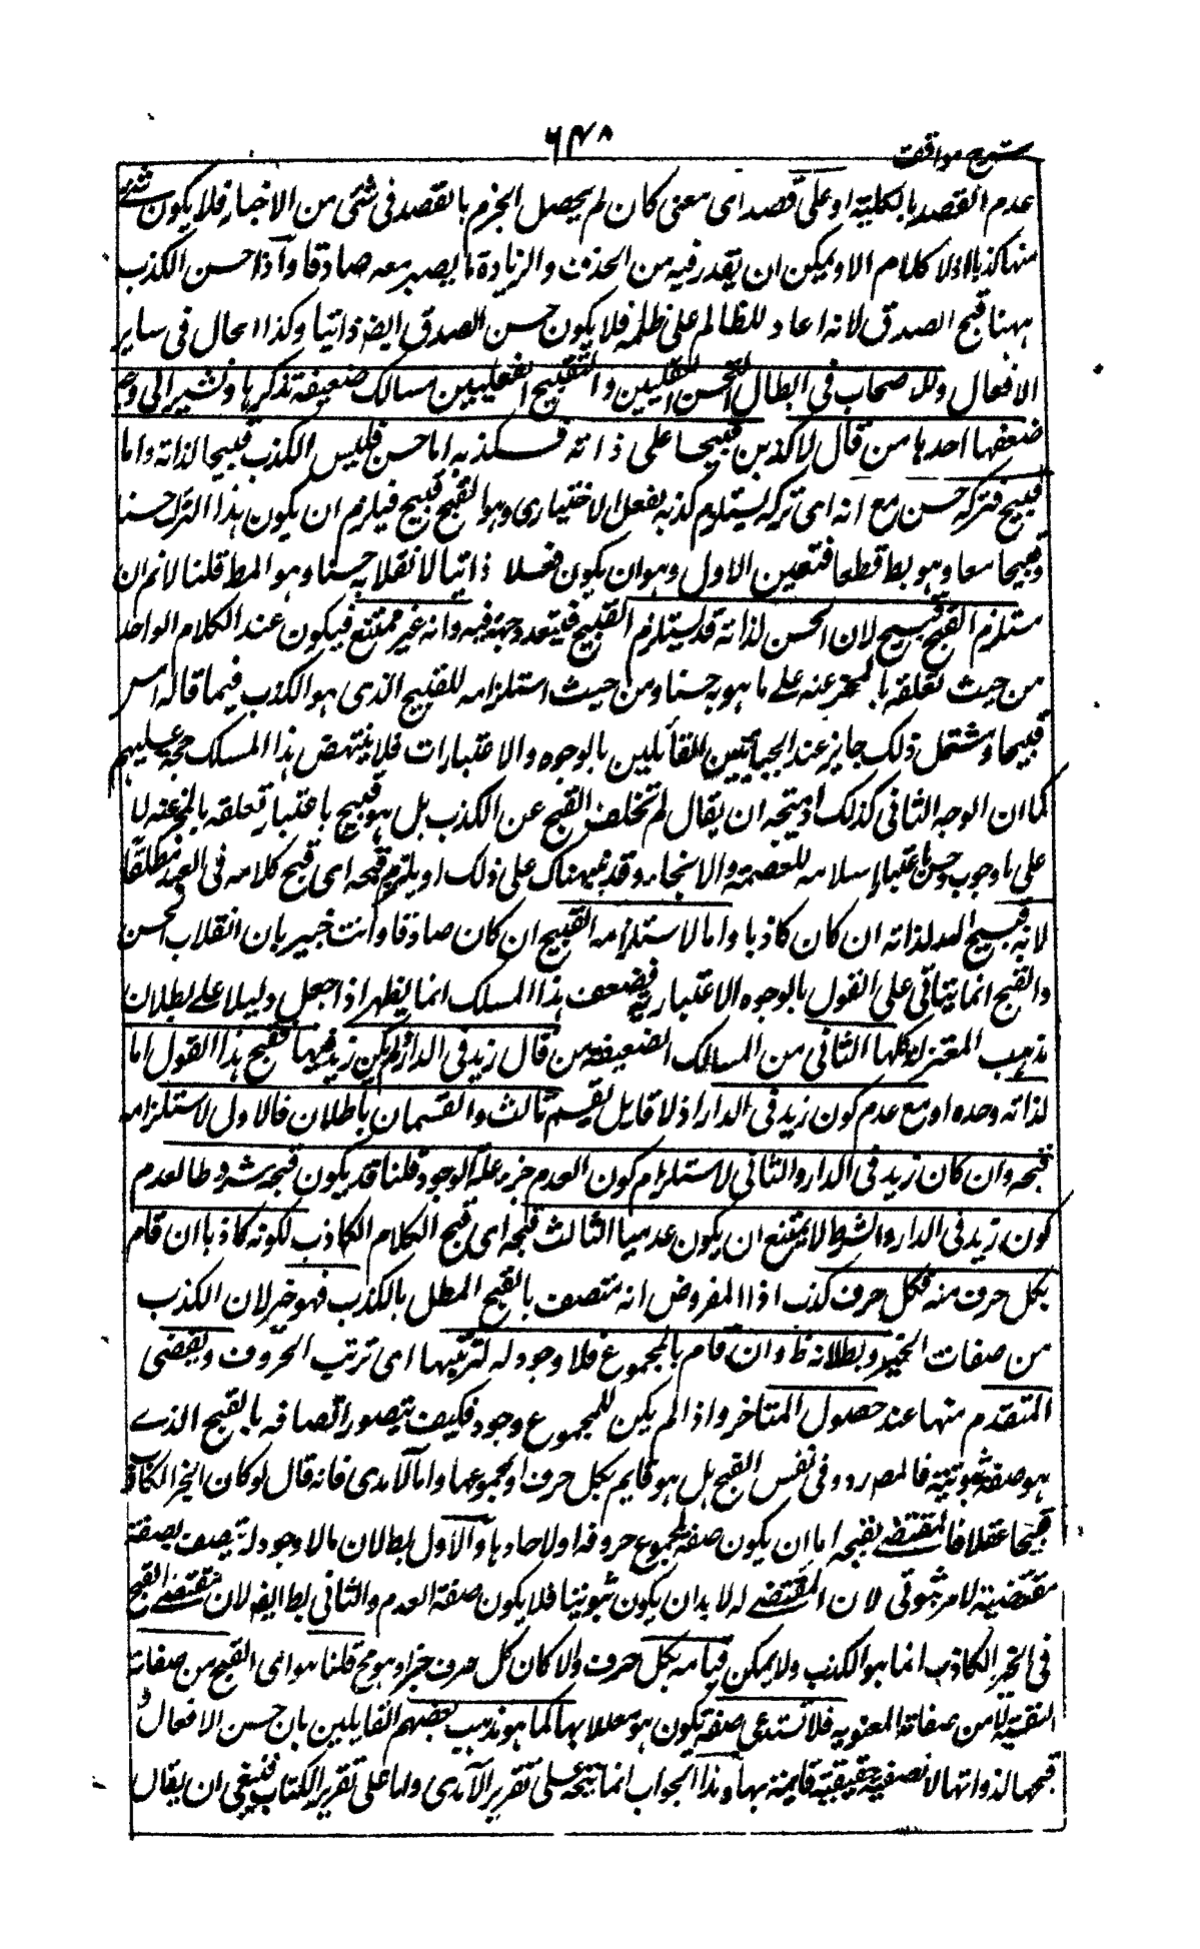 شرح مواقف
۶۴۸
عدم القصد بالكلية او على قصد اى معنى كان لم يحصل الجزم بالقصد فى شئ من الاخبار فلا يكون شئ
منها كذبا اذ لا كلام الا ويمكن ان يقدر فيه من الحذف والزيادة ما يصير معه صادقا و اذا حسن الكذب
ههنا قبح الصدق لانه اعاد للظالم على ظلمه فلا يكون حسن الصدق ايضا ذاتيا وكذا الحال فى ساير
الافعال وللاصحاب فى ابطال التحسن العقليين والتقبيح العقليين مسالك ضعيفة نذكرها ونشير الى وجه
ضعفها احدها من قال لاكذبن قبيحا على ذاته فكذبه اما حسن فليس الكذب قبيحا لذاته واما
قبيح فتركه حسن مع انه اى تركه يستلزم كذبه بفعل لاختيارى وهو القبح قبيح فيلزم ان يكون هذا الترك حسنا
وقبيحا معا وهو بط قطعا فتعين الاول وهو ان يكون فعلا ذاتيا لانقلابه حسنا وهو المط قلنا لا نم ان
مستلزم القبح قبيح لان الحسن لذاته قد يستلزم القبيح فيتعدد جهة فيه وانه غير ممتنع فيكون عند الكلام الواحد
من حيث تعلقه بالمخبر عنه على ما هو به حسنا ومن حيث استلزامه للقبيح الذى هو الكذب فيما قاله امس
قبيحا ومشتمل ذلك جايز عند الجبائيين للقائلين بالوجوه والاعتبارات فلا ينتهض هذا المسلك حجة عليهم
كما ان الوجه الثانى كذلك اذ يتجه ان يقال لم تخلف القبح عن الكذب بل هو قبيح باعتبار تعلقه بالمخبر عنه لا
على ما هو به وحسن باعتبار استلزامه للعصمة والانجاء وقد نبهناك على ذلك او يلتزم قبحه اى قبح كلامه فى الغد مطلقا
لانه قبيح اما لذاته ان كان كاذبا واما لاستلزامه القبيح ان كان صادقا وانت خبير بان انقلاب الحسن
والقبح انما يتاتى على القول بالوجوه الاعتبارية فضعف هذا المسلك انما يظهر اذا جعل دليلا على بطلان
مذهب المعتزلة كلها الثانى من المسالك الضعيفة من قال زيد فى الدار ولم يكن زيد فيها فقبح هذا القول اما
لذاته وحده او مع عدم كون زيد فى الدار اذ لا قايل بقسم ثالث والقسمان باطلان فالاول لاستلزامه
قبحه وان كان زيد فى الدار والثانى لاستلزام كون العدم جزء علة الوجود قلنا قد يكون قبحه مشروطا لعدم
كون زيد فى الدار والشرط لا يمتنع ان يكون عدميا الثالث قبحه اى قبح الكلام الكاذب لكونه كاذبا ان قام
بكل حرف منه فكل حرف كذب اذ المفروض انه متصف بالقبح المعلل بالكذب فهو خبر لان الكذب
من صفات الخبر وبطلانه ظ وان قام بالمجموع فلا وجود له لترتبها اى ترتب الحروف وتقضى
المتقدم منها عند حصول المتاخر واذا لم يكن للمجموع وجود فكيف يتصور اتصافه بالقبح الذے
هو صفة ثبوتية فالمصردد فى نفس القبح هل هو قايم بكل حرف او بمجموعها واما الآمدى فانه قال لو كان الخبر الكاذب
قبيحا عقلا فالمقتضے لقبحه اما ان يكون صفة لمجموع حروفه او لاحادها والاول بط لان مالا وجود له لا يتصف بصفة
مقتضية لامر ثبوتى لان المقتضے له لا بد ان يكون ثبوتيا فلا يكون صفة العدم والثانى بط ايضا لان مقتضے القبح
فى الخبر الكاذب انما هو الكذب ولا يمكن قيامه بكل حرف والا كان كل حرف خبرا وهو مح قلنا هو اى القبح من صفاته
النفسية لا من صفاته المعنوية فلا تستدعى صفة يكون هو معللا بها كما هو مذهب بعضهم القايلين بان حسن الافعال و
قبحها لذواتها لا لصفة حقيقية قايمة بها وهذا الجواب انما يتجه على تقرير الآمدى واما على تقرير الكتاب فينبغى ان يقال